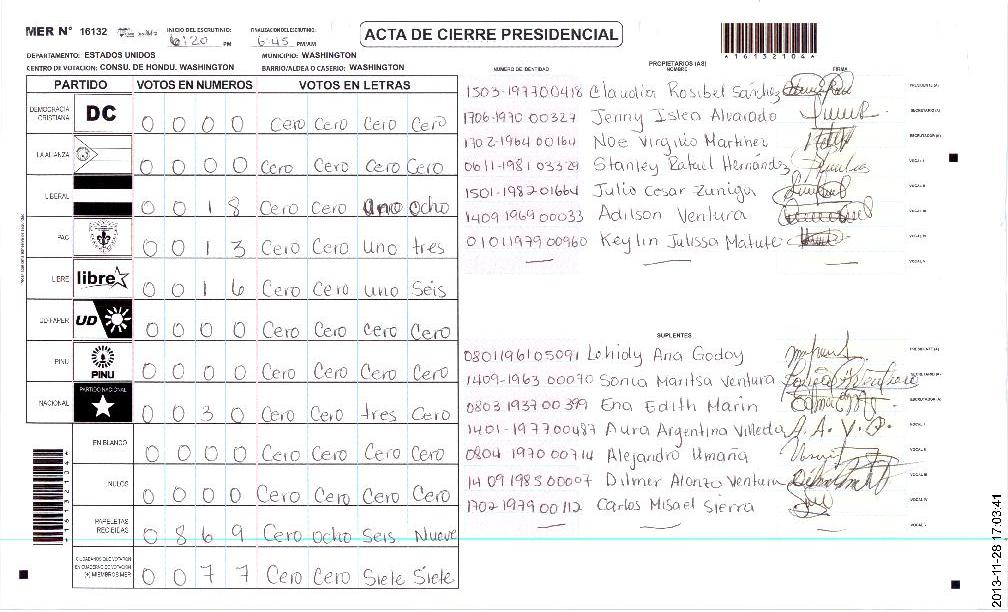 MER N° 16132 INICIO DEL ESCRUTINIO: 6:20 PM FINALIZACION DEL ESCRUTINIO: 6:45 PM/AM ACTA DE CIERRE PRESIDENCIAL
DEPARTAMENTO: ESTADOS UNIDOS MUNICIPIO: WASHINGTON
CENTRO DE VOTACION: CONSU. DE HONDU. WASHINGTON BARRIO/ALDEA O CASERIO: WASHINGTON
*16132104*
PARTIDO VOTOS EN NUMEROS VOTOS EN LETRAS
DEMOCRACIA CRISTIANA DC 0 0 0 0 Cero Cero Cero Cero
LA ALIANZA 0 0 0 0 Cero Cero Cero Cero
LIBERAL 0 0 1 8 Cero Cero uno ocho
PAC 0 0 1 3 Cero Cero uno tres
LIBRE libre 0 0 1 6 Cero Cero uno Seis
UD-FAPER UD 0 0 0 0 Cero Cero Cero Cero
PINU PINU 0 0 0 0 Cero Cero Cero Cero
NACIONAL PARTIDO NACIONAL 0 0 3 0 Cero Cero tres Cero
EN BLANCO 0 0 0 0 Cero Cero Cero Cero
NULOS 0 0 0 0 Cero Cero Cero Cero
PAPELETAS RECIBIDAS 0 8 6 9 Cero ocho Seis Nueve
CIUDADANOS QUE VOTARON EN CUADERNO DE VOTACION (+) MIEMBROS MER 0 0 7 7 Cero Cero Siete Siete
PROPIETARIOS (AS)
NUMERO DE IDENTIDAD NOMBRE FIRMA
1503-197700418 Claudia Rosibel Sanchez PRESIDENTE (A)
1706-1970 00327 Jenny Islea Alvarado SECRETARIO (A)
1702-1964 00164 Noe Virgilio Martinez ESCRUTADOR (A)
0611-1981 03329 Stanley Rafael Hernández VOCAL I
1501-1982 01664 Julio Cesar Zuniga VOCAL II
1409 1969 00033 Adilson Ventura VOCAL III
0101 1979 00960 Keylin Julissa Matute VOCAL IV
VOCAL V
SUPLENTES
0801196105091 Lehidy Ana Godoy PRESIDENTE (A)
1409-1963 00070 Sonia Maritsa Ventura SECRETARIO (A)
0803 1937 00399 Ena Edith Marin ESCRUTADOR (A)
1401-197700487 Aura Argentina Villeda A. A. V. D. VOCAL I
0804 1970 00714 Alejandro Umaña VOCAL II
1409 1985 00007 Dilmer Alonzo Ventura VOCAL III
1702-1979 00112 Carlos Misael Sierra VOCAL IV
VOCAL V
2013-11-28 17:03:41